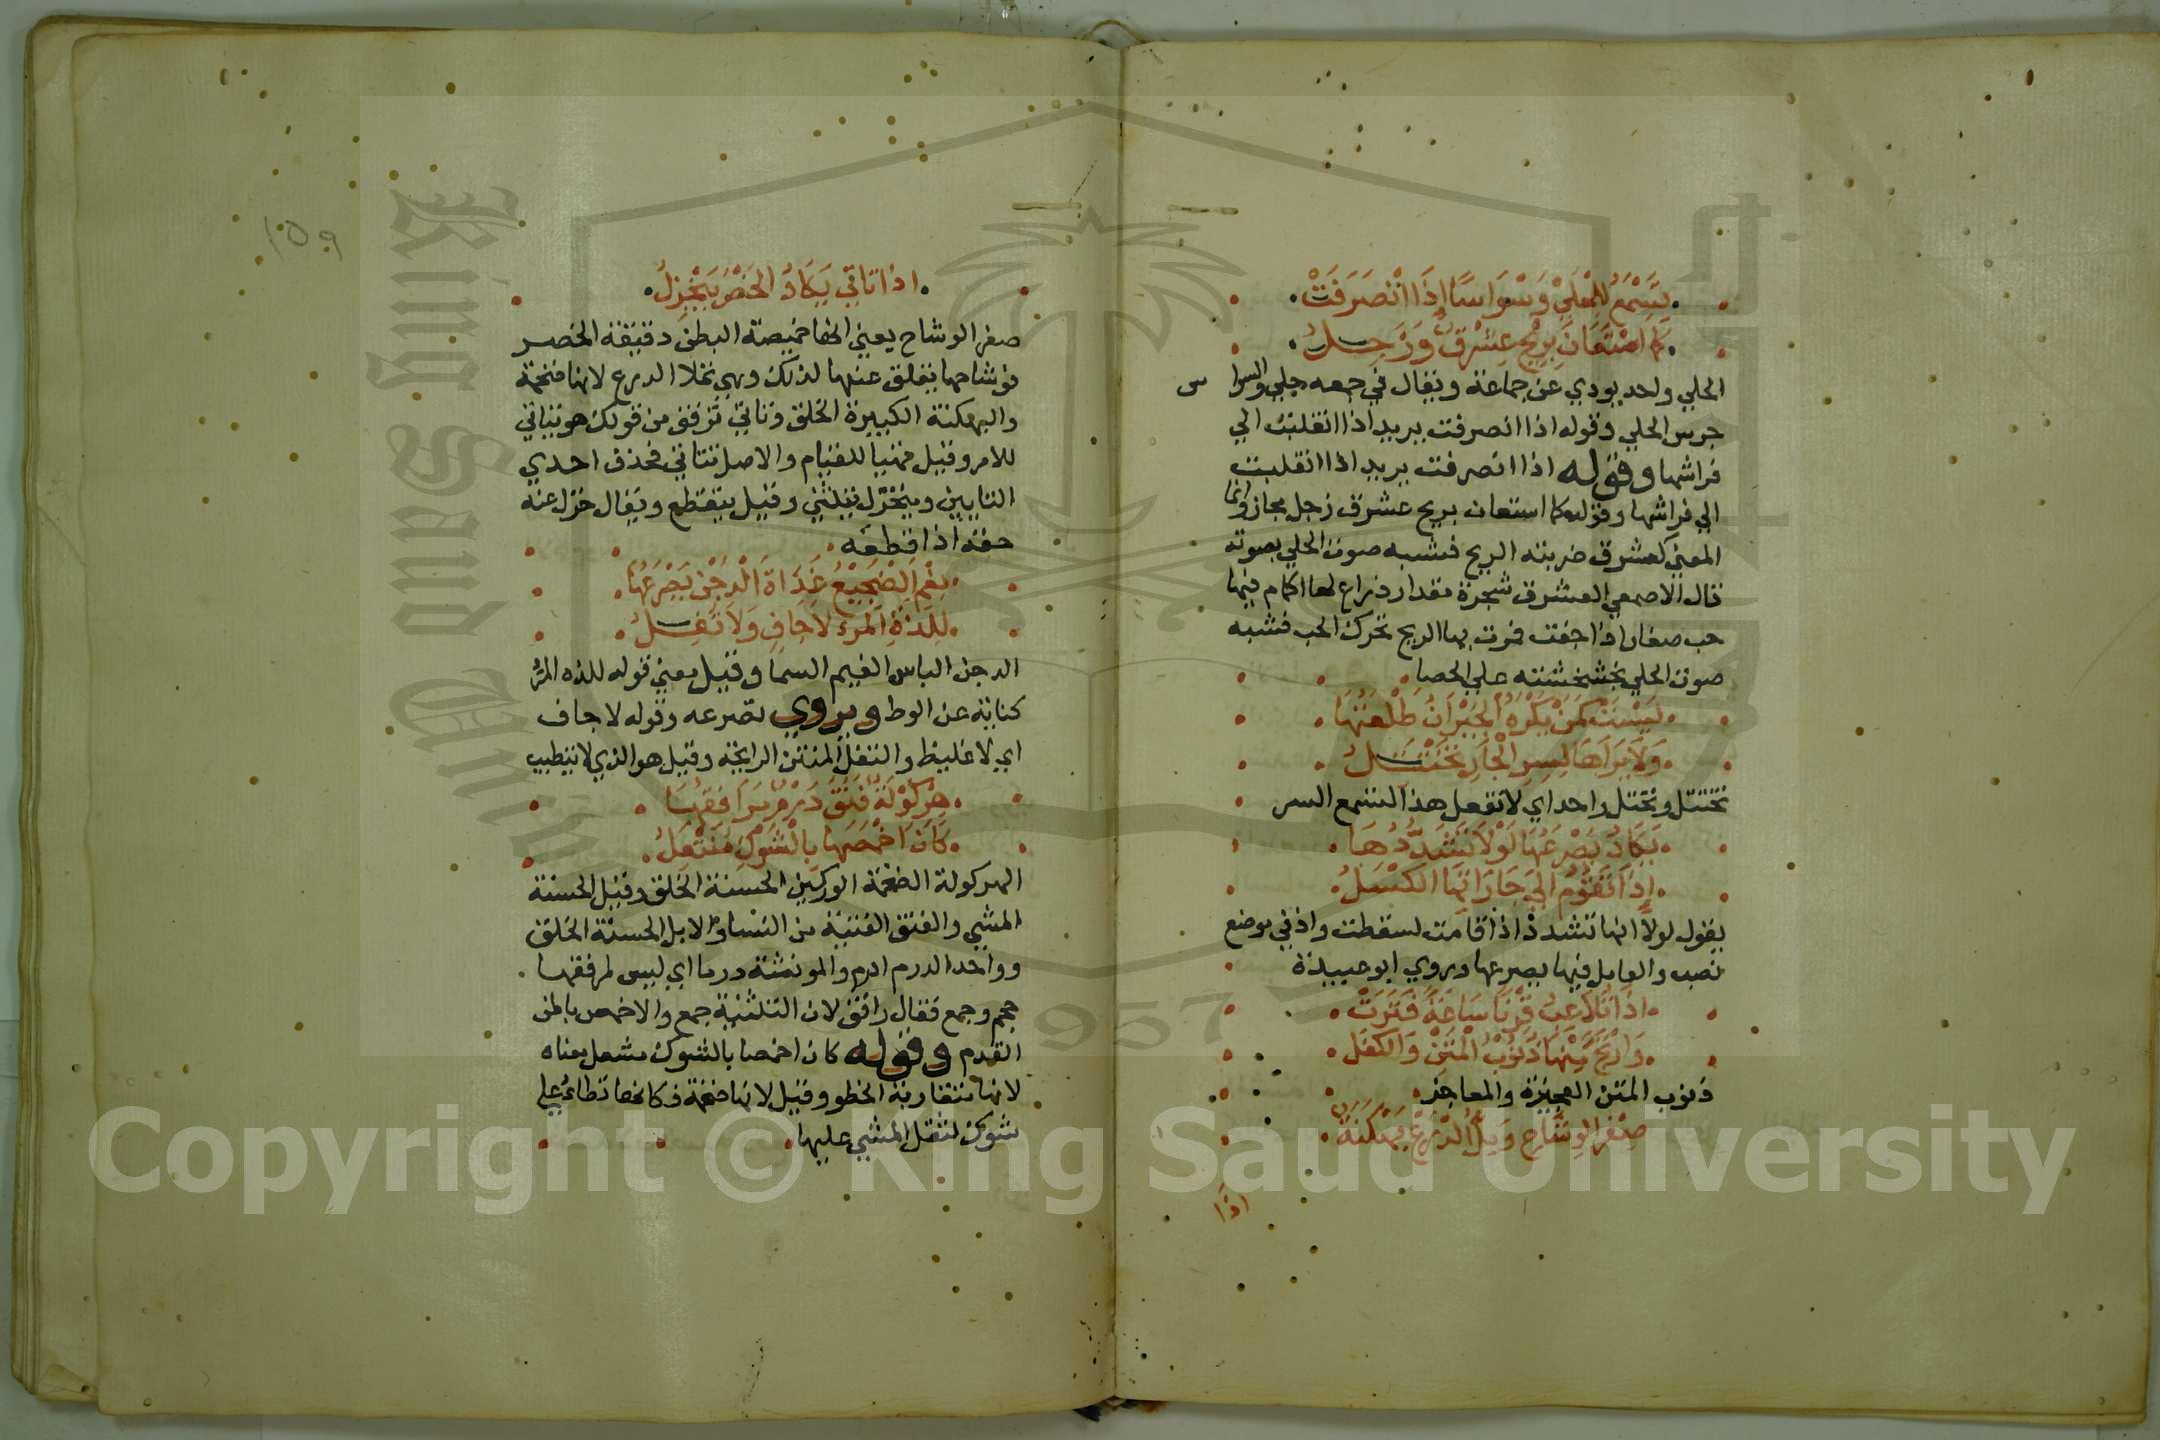 تَسْمَعُ لِلْحَلْيِ وَسْوَاسًا اِذَا انْصَرَفَتْ
كَمَا اسْتَعَانَ بِرِيْحٍ عِشْرِقٌ وَزَجِلُ
الحلي واحد يودي عن جماعة ويقال في جمعه حلي والسوا س
جرس الحلي وقوله اذا انصرفت يريد اذا انقلبت الي
فراشها وقوله اذا انصرفت يريد اذا انقلبت
الي فراشها وقوله كما استعان بريح عشرق زجل مجاز وانما
المعني كعشرق ضربته الريح فشبه صوت الحلي بصوته
قال الاصمعي العشرق شجرة مقدار ذراع لها اكمام فيها
حب صغار اذا جفت فمرت بها الريح تحرك الحب فشبه
صوت الحلي بخشخشته علي الحصا
لَيْسَتْ كَمَنْ يَكْرَهُ الْجِيْرَانُ طَلْعَتَهَا
وَلَا تَرَاهَا لِسِرِّ الْجَارِ تَخْتَتِلُ
تختتل وتختل واحد اي لا تفعل هذا لتسمع السر
يَكَادُ يَصْرَعُهَا لَوْلَا تَشَدُّدُهَا
اِذَا تَقُوْمُ اِلَي جَارَاتِهَا الْكَسَلُ
يقول لولا انها تشدد اذا قامت لسقطت واذ في موضع
نصب والعامل فيها يصرعها ويروي ابو عبيدة
اِذَا تُلَاعِبُ قِرْنًا سَاعَةً فَتَرَتْ
وَارْتَجَّ مِنْهَا ذَنُوْبُ الْمَتْنِ وَالْكَفَلُ
ذنوب المتن العجيزة والمعاجز
صِفْرُ الْوِشَاحِ وَمِلْءُ الدِّرْعِ بَهْكَنَةٌ
اذا
١٥٩
اِذَا تَاَتَّي يَكَادُ الْخَصْرُ يَنْخَزِلُ
صفر الوشاح يعني انها خميصة البطن دقيقة الخصر
فوشاحها يقلق عنها لذلك وهي تملا الدرع لانها ضخمة
والبهكنة الكبيرة الخلق وتاتي ترفق من قولك هو يتاتي
للامر وقيل تهيا للقيام والاصل تتاتي فحذف احدي
التايين وينخزل ينثني وقيل يتقطع ويقال خزل عنه
حقه اذا قطعه
نِعْمَ الضَّجِيْعُ غَدَاةَ الدَّجْنِ يَصْرَعُهَا
لِلَذَّةِ الْمَرْءِ لَا جَافٍ وَلَا تَفِلُ
الدجن الباس الغيم السما وقيل معني قوله للذه المرء
كناية عن الوط ويروي تصرعه وقوله لا جاف
اي لا غليظ والتفل المنتن الرايحة وقيل هو الذي لا يتطيب
هِرْكَوْلَةٌ فُنُقٌ دُرْمٌ مَرَافِقُهَا
كَاَنَّ اَخْمَصَهَا بِالشَّوْكِ مُنْتَعِلُ
الهركولة الضخمة الوركين الحسنة الخلق وقيل الحسنة
المشي والفنق الفتية من النساو الابل الحسنة الخلق
وواحد الدرم ادرم والمونثة درما اي ليس لمرفقها
حجم وجمع فقال رافق لان التثنية جمع والاخمص باطن
القدم وقوله كان اخمصا بالشوك منتعل معناه
لانها متقاربة الخطو وقيل لانها ضخمة فكانها تطا علي
شوك لثقل المشي عليها
King Saud University
1957
Copyright © King Saud University